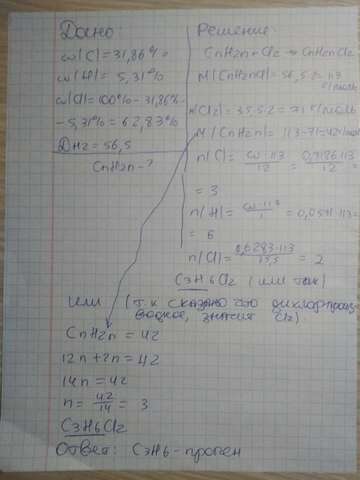 Дано:
ω(C) = 31,86%
ω(H) = 5,31%
ω(Cl) = 100% - 31,86% -
- 5,31% = 62,83%
DH2 = 56,5
CnH2n - ?
Решение:
CnH2n + Cl2 → CnH2nCl2
M(CnH2nCl2) = 56,5·2 = 113
г/моль
M(Cl2) = 35,5·2 = 71 г/моль
M(CnH2n) = 113-71=42 г/моль
n(C) = ω·113 / 12 = 0,3186·113 / 12 =
= 3
n(H) = ω·113 / 1 = 0,0531·113 =
= 6
n(Cl) = 0,6283·113 / 35,5 = 2
C3H6Cl2 (или так)
или (т.к сказано что дихлорпроиз
водное, значит Cl2)
CnH2n = 42
12n + 2n = 42
14n = 42
n = 42/14 = 3
C3H6Cl2
Ответ: C3H6 - пропен